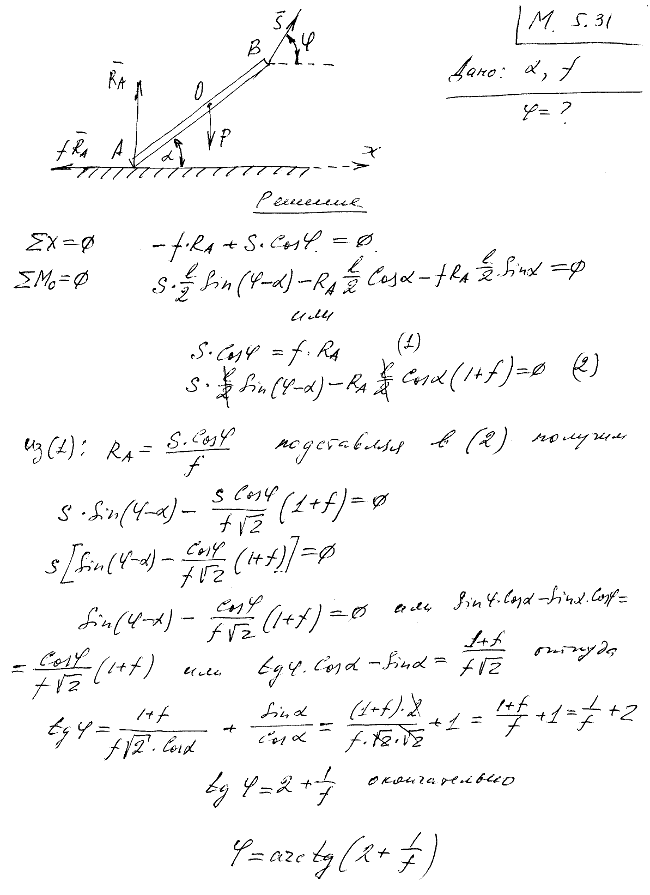 М. 5.31
Дано: α, f
φ = ?
S̄
φ
B
R̄A
O
P
fR̄A
A
α
x
Решение
ΣX=0 -f·RA + S·Cosφ = 0
ΣMo=0 S·l/2 Sin(φ-α) - RA l/2 Cosα - fRA l/2·Sinα = 0
или
S·Cosφ = f·RA (1)
S·l/2 Sin(φ-α) - RA l/2 Cosα(1+f) = 0 (2)
из(1): RA = S·Cosφ/f подставляя в (2) получим
S·Sin(φ-α) - S Cosφ/f√2 (1+f) = 0
S[Sin(φ-α) - Cosφ/f√2 (1+f)] = 0
Sin(φ-α) - Cosφ/f√2 (1+f) = 0 или Sinφ·Cosα - Sinα·Cosφ =
= Cosφ/f√2 (1+f) или tgφ·Cosα - Sinα = 1+f/f√2 откуда
tgφ = 1+f/f√2·Cosα + Sinα/Cosα = (1+f)·2/f·√2·√2 + 1 = 1+f/f + 1 = 1/f + 2
tgφ = 2 + 1/f окончательно
φ = arctg(2 + 1/f)